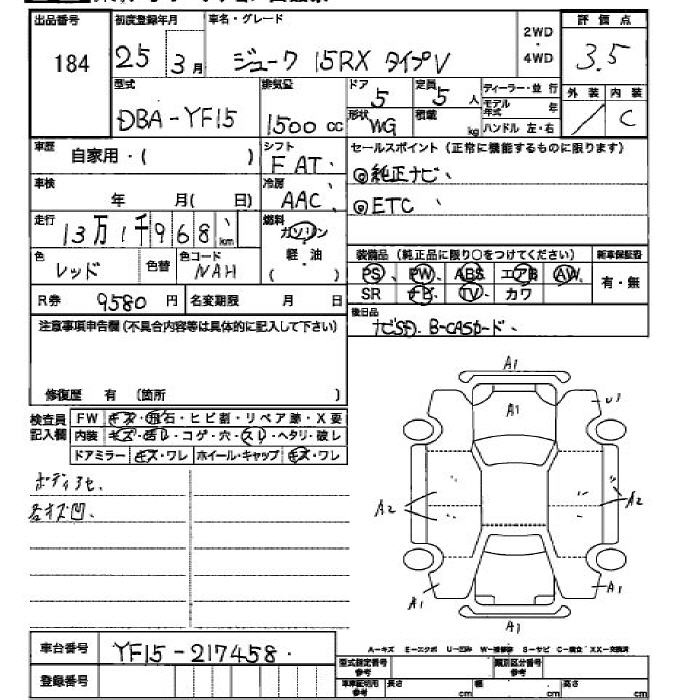 出品番号 初度登録年月 車名・グレード 2WD・4WD 評価点
184 25 3月 ジューク 15RX タイプV 3.5
型式 排気量 ドア 定員 ディーラー・並行 外装 内装
DBA-YF15 1500cc 5 5人 モデル年式 年 / C
形状 WG 積載 kg ハンドル 左・右
車歴 自家用・( ) シフト FAT セールスポイント(正常に機能するものに限ります)
車検 年 月( 日) 冷房 AAC ◎純正ナビ、
走行 13万1千968、km 燃料 ガソリン・軽油・( ) ◎ETC 、
色 レッド 色替 色コード NAH 装備品(純正品に限り○をつけてください) 新車保証書
PS、PW、ABS エアB AW、 有・無
R券 9580円 名変期限 月 日 SR ナビ TV、カワ
注意事項申告欄(不具合内容等は具体的に記入して下さい) 後日品
ナビSD. B-CASカード、
修復歴 有 〔箇所 〕
検査員記入欄 FW キズ・飛石・ヒビ割・リペア跡・X要
内装 キズ・汚レ・コゲ・穴・スレ・ヘタリ・破レ
ドアミラー キズ・ワレ ホイール・キャップ キズ・ワレ
A1
A1
U1
ボディアセ、
各キズ凹、
A2 A2
A1 A1
A1
車台番号 YF15-217458.
A-キズ E-エクボ U-凹み W-補修跡 S-サビ C-腐食 XX-交換済
登録番号 型式指定番号 参考 類別区分番号 参考
車車証明用 参考 長さ cm 幅 cm 高さ cm